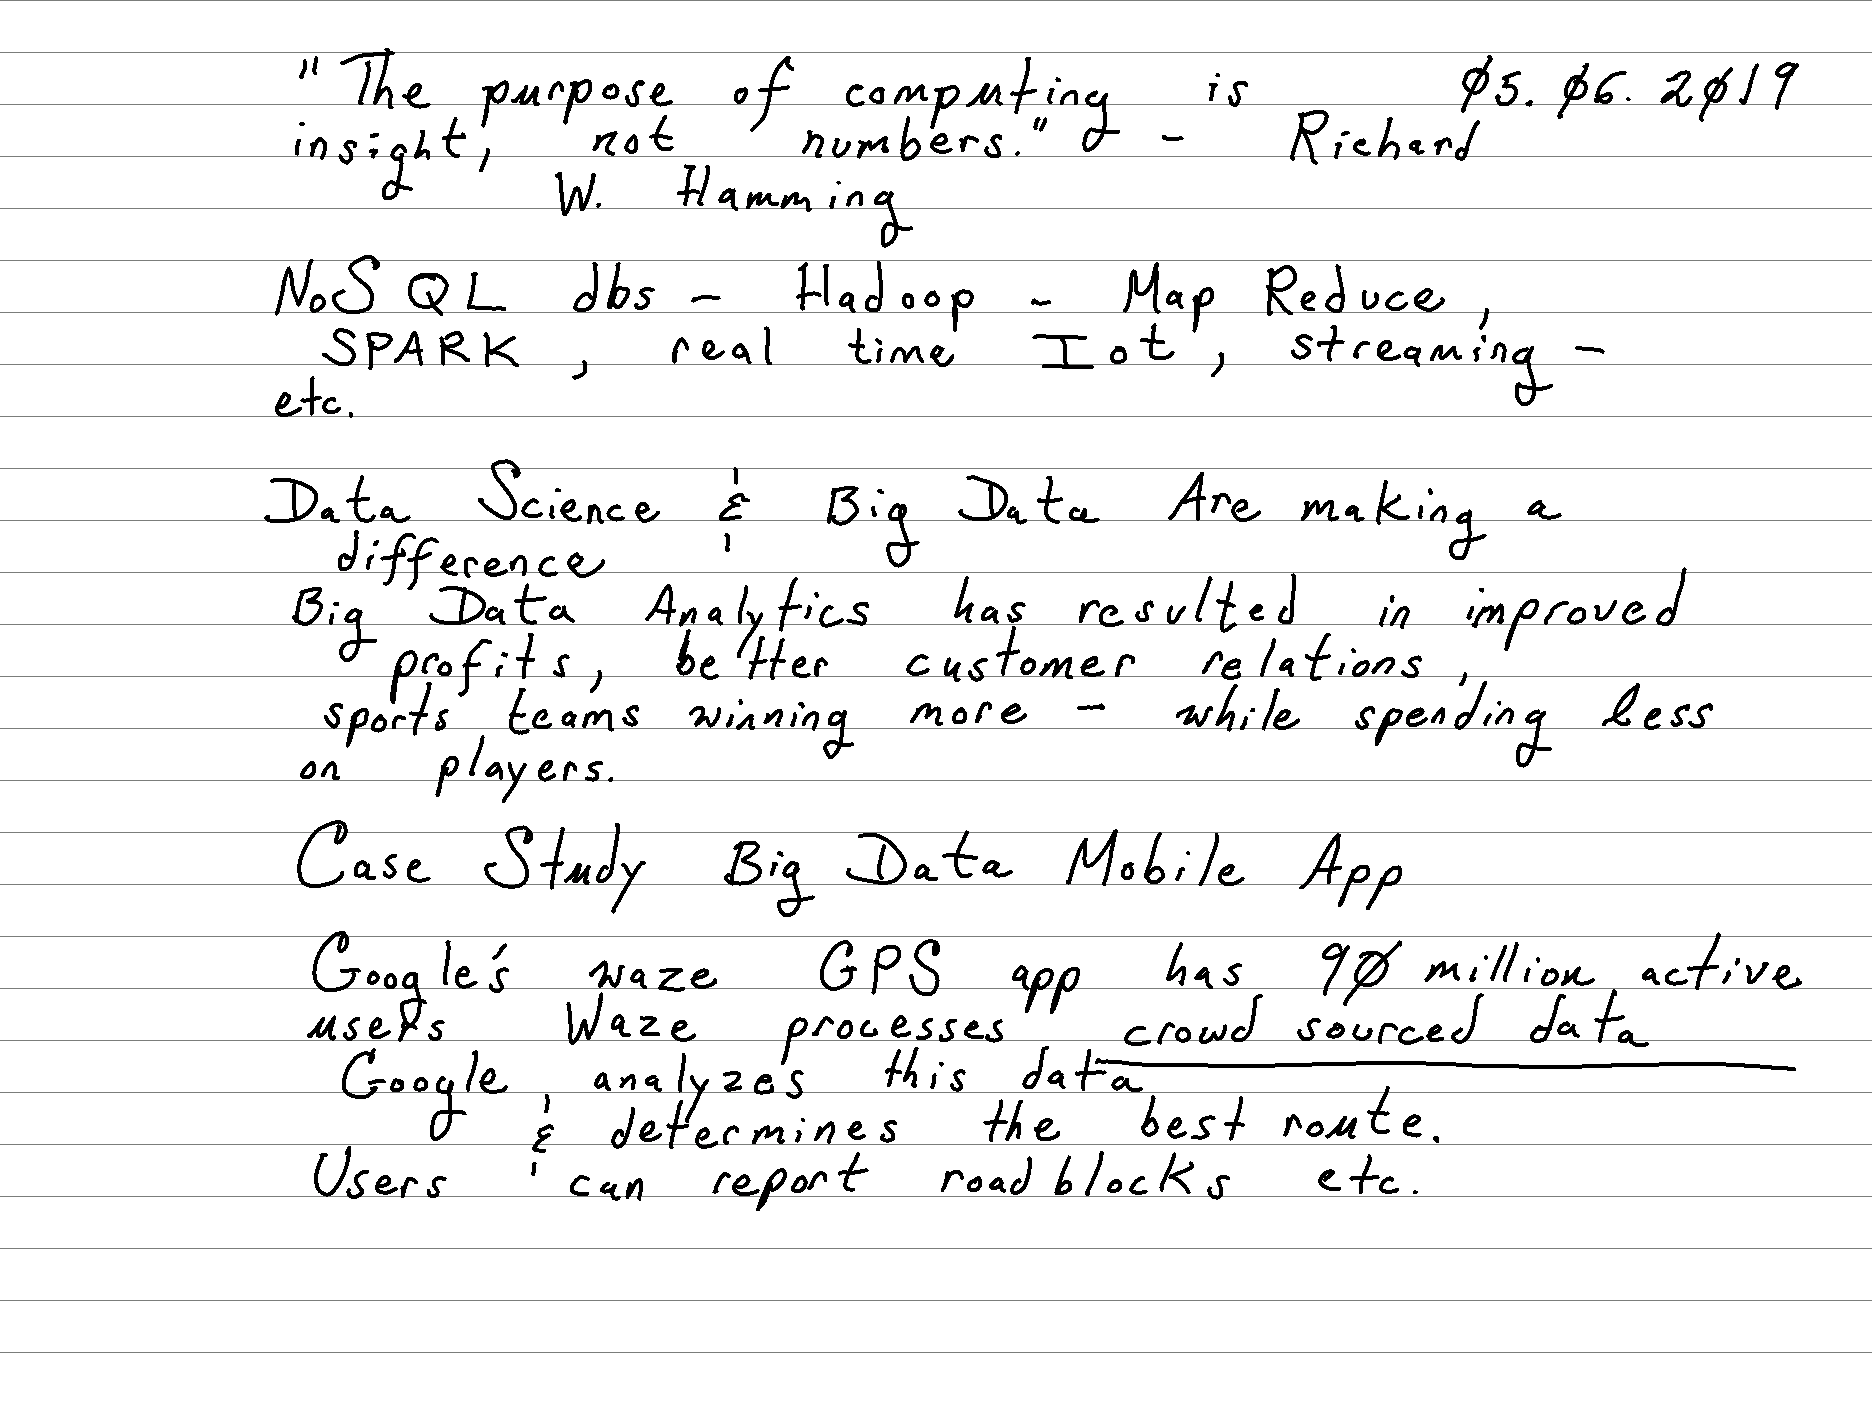 "The purpose of computing is 05.06.2019
insight, not numbers." - Richard
W. Hamming
NoSQL dbs - Hadoop - Map Reduce,
SPARK, real time Iot, streaming -
etc.
Data Science & Big Data Are making a
difference
Big Data Analytics has resulted in improved
profits, better customer relations,
sports teams winning more - while spending less
on players.
Case Study Big Data Mobile App
Google's waze GPS app has 90 million active
users Waze processes crowd sourced data
Google analyzes this data
& determines the best route.
Users can report road blocks etc.